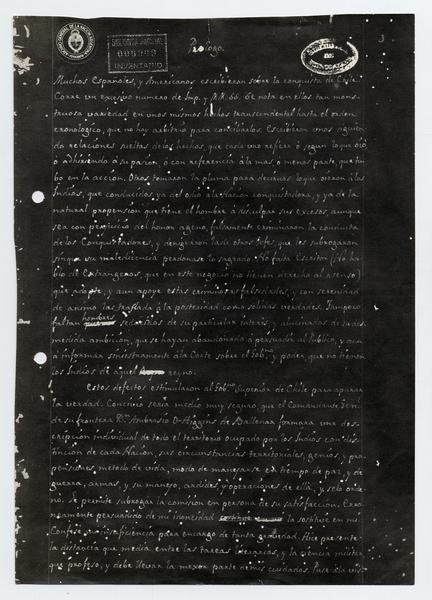 Prologo.
Muchos Españoles, y Americanos escribieron sobre la conquista de Chile.
Corre un excesivo numero de Imp. y M.M. SS. Se nota en ellos tan mons-
truosa variedad en unos mismos hechos transcendental hasta el orden
cronologico, que no hay arbitrio para conciliarlos. Escribieron unos siguien-
do relaciones sueltas de los hechos, que cada uno refirió ó segun lo que oió,
ó adhiriendo á su pasion, ó con referencia á la mas, ó menos parte que tu-
bo en la accion. Otros tomaron la pluma para decirnos lo que oieron á los
Indios, que conducidos, ya del odio á la Nacion conquistadora, y ya de la
natural propension que tiene el hombre á disculpar sus excesos, aunque
sea con perjuicio del honor ageno, falsamente criminaron la conducta
de los Conquistadores, y denigraron la de otros Gefes, que les subrogaron
sin que su maledicencia perdonase lo sagrado. No falta Escritor (No ha-
blo de Extrangeros, que en este negocio no tienen derecho al asenso)
que adopte, y aun apoye estas criminosas falsedades, y con serenidad
de animo las traslada á la posteridad como solidas verdades. Tampoco
faltan hombres sedientos de su particular interes, y alucinados de su des-
medida ambicion, que se hayan abandonado á persuadir al Publico, y aun
á informar siniestramente á la Corte sobre el Gob.no y poder, que no tienen
los Indios de aquel reyno.
Estos defectos estimularon al Gob.no Superior de Chile para apurar
la verdad. Concivió seria medio muy seguro que el Comandante Gen.l
de su frontera D.n Ambrosio O-Higgins de Ballenar formara una des-
cripcion individual de todo el territorio ocupado por los Indios con dis-
tincion de cada Nacion, sus circunstancias territoriales, genios, y pro-
pensiones, metodo de vida, modo de manejarse en tiempo de paz, y de
guerra, armas, y su manejo, ardides, y operaciones de ella, y solo orde-
nó. Se permitió subrogar la comision en persona de su satisfaccion. Erro-
neamente persuadido de mi idoneidad la sostituie en mi.
Confesé mi insuficiencia para encargo de tanta gravedad. Hice presente
la distancia que media entre las tareas literarias, y la ciencia militar
que profeso, y debe llevar la mayor parte de mis cuidados. Puse á la vis-